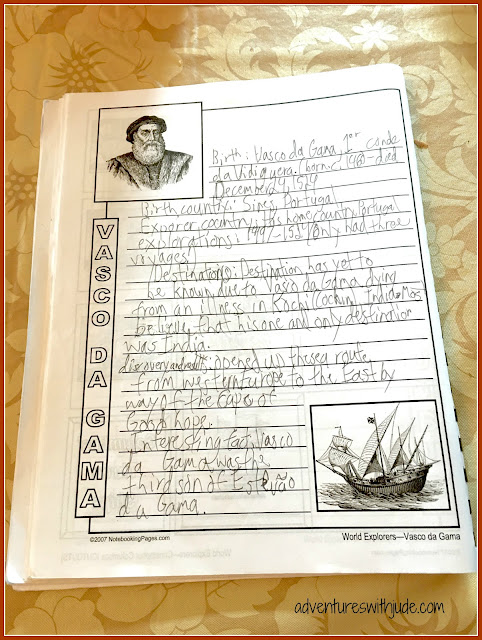 Birth: Vasco da Gama, 1er conde
da Vidiguera. (born c. 1460 - died
December 24, 1524
Birth country: Sines, Portugal
Exporer country: His home country, Portugal
explorations: 1497-1524 (only had three
voyages)
Destinations: Destination has yet to
be known due to Vasco da Gama dying
from an illness in Kochi (Cochin), India. Most
believe that his one and only destination
was India.
discovery and: opened up the sea route
from western europe to the East by
way of the Cape of
Good hope.
Interesting fact: Vasco
da Gama was the
third son of Estevão
da Gama.
VASCO DA GAMA
©2007 NotebookingPages.com
World Explorers—Vasco da Gama
adventureswithjude.com